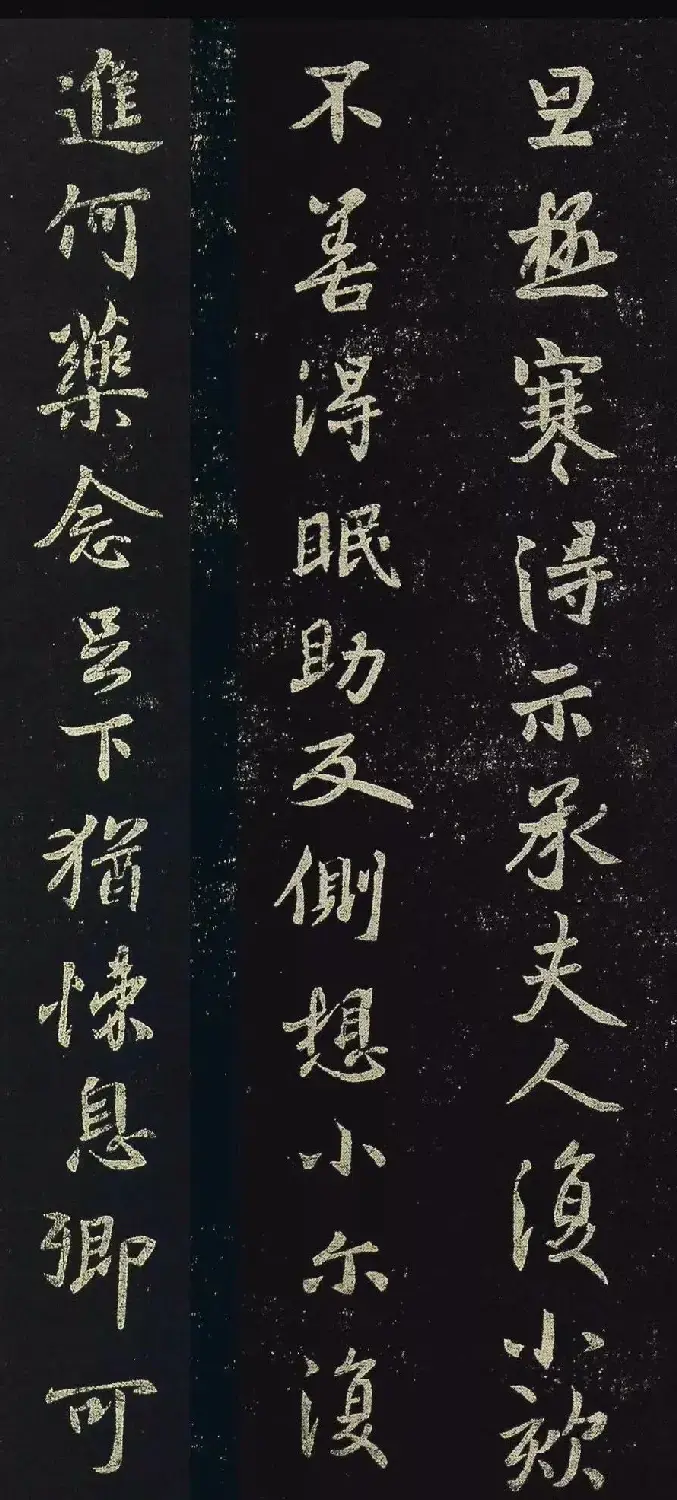 旦極寒得示承夫人復小欬
不善得眠助反側想小尔復
進何藥念足下猶悚息卿可